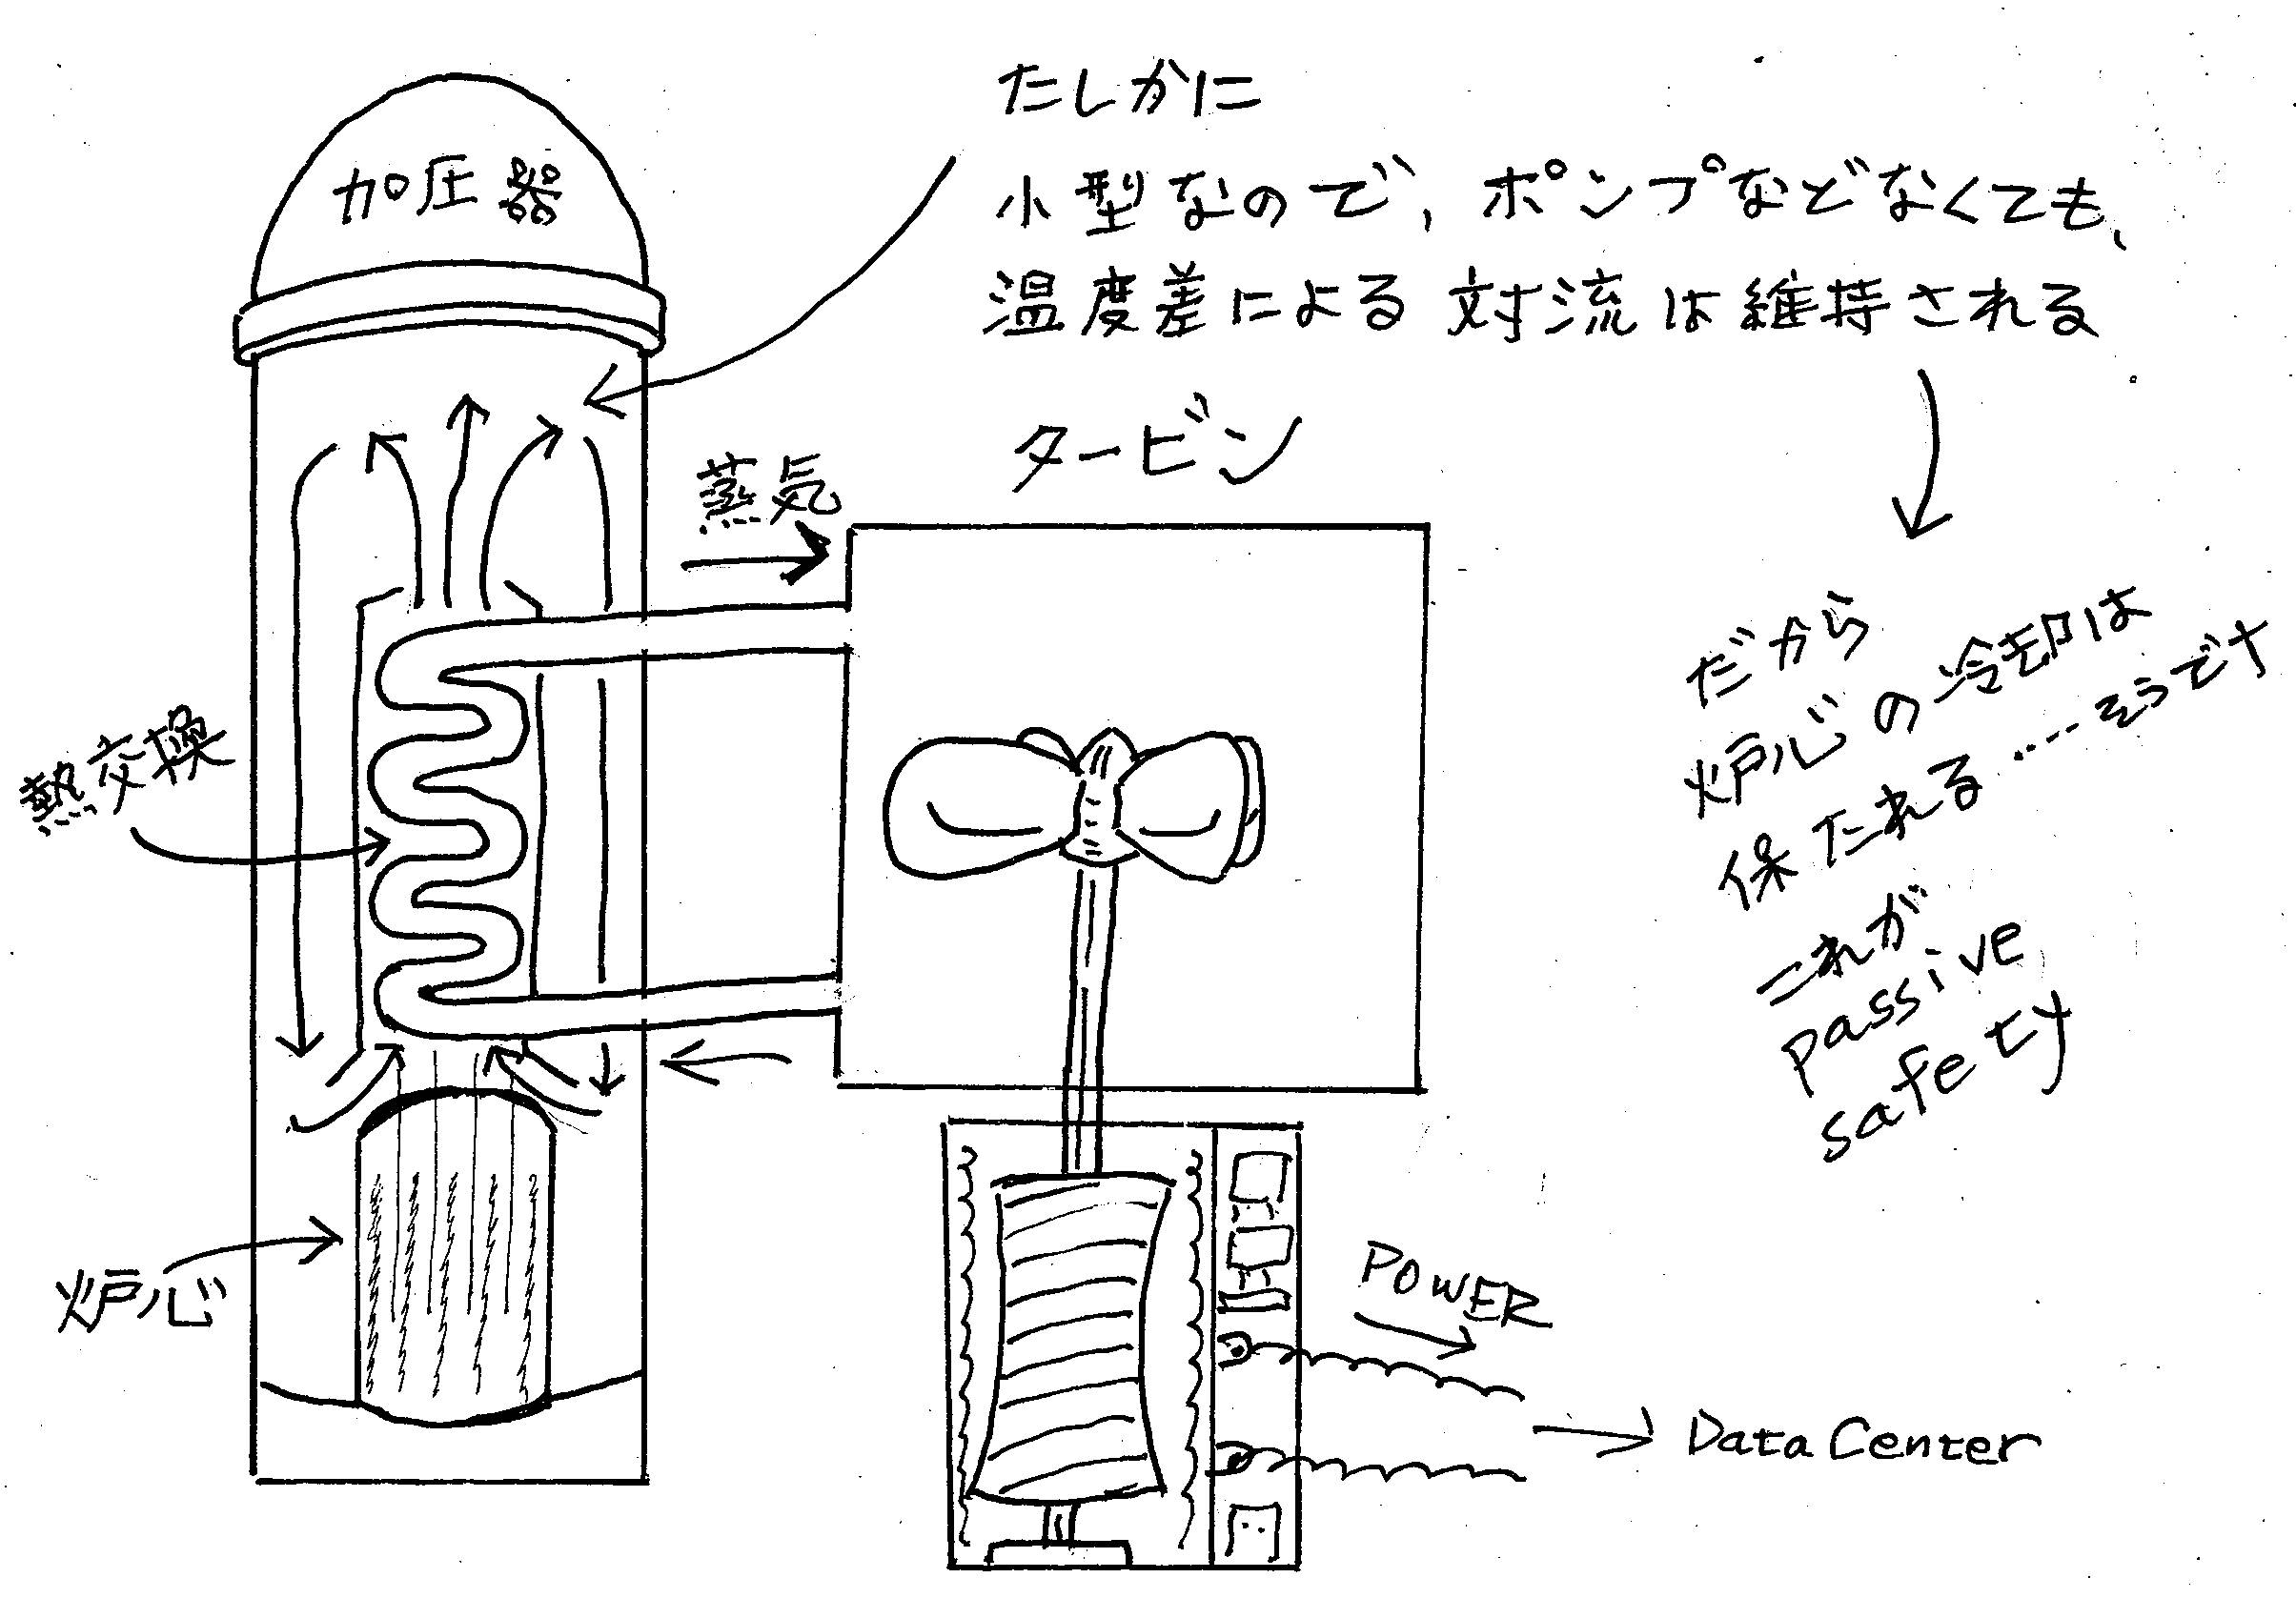 加圧器
たしかに
小型なので、ポンプなどなくても、
温度差による対流は維持される
蒸気
タービン
熱交換
炉心
だから
炉心の冷却は
保たれる……そうです
これが
passive
safety
POWER
Data Center